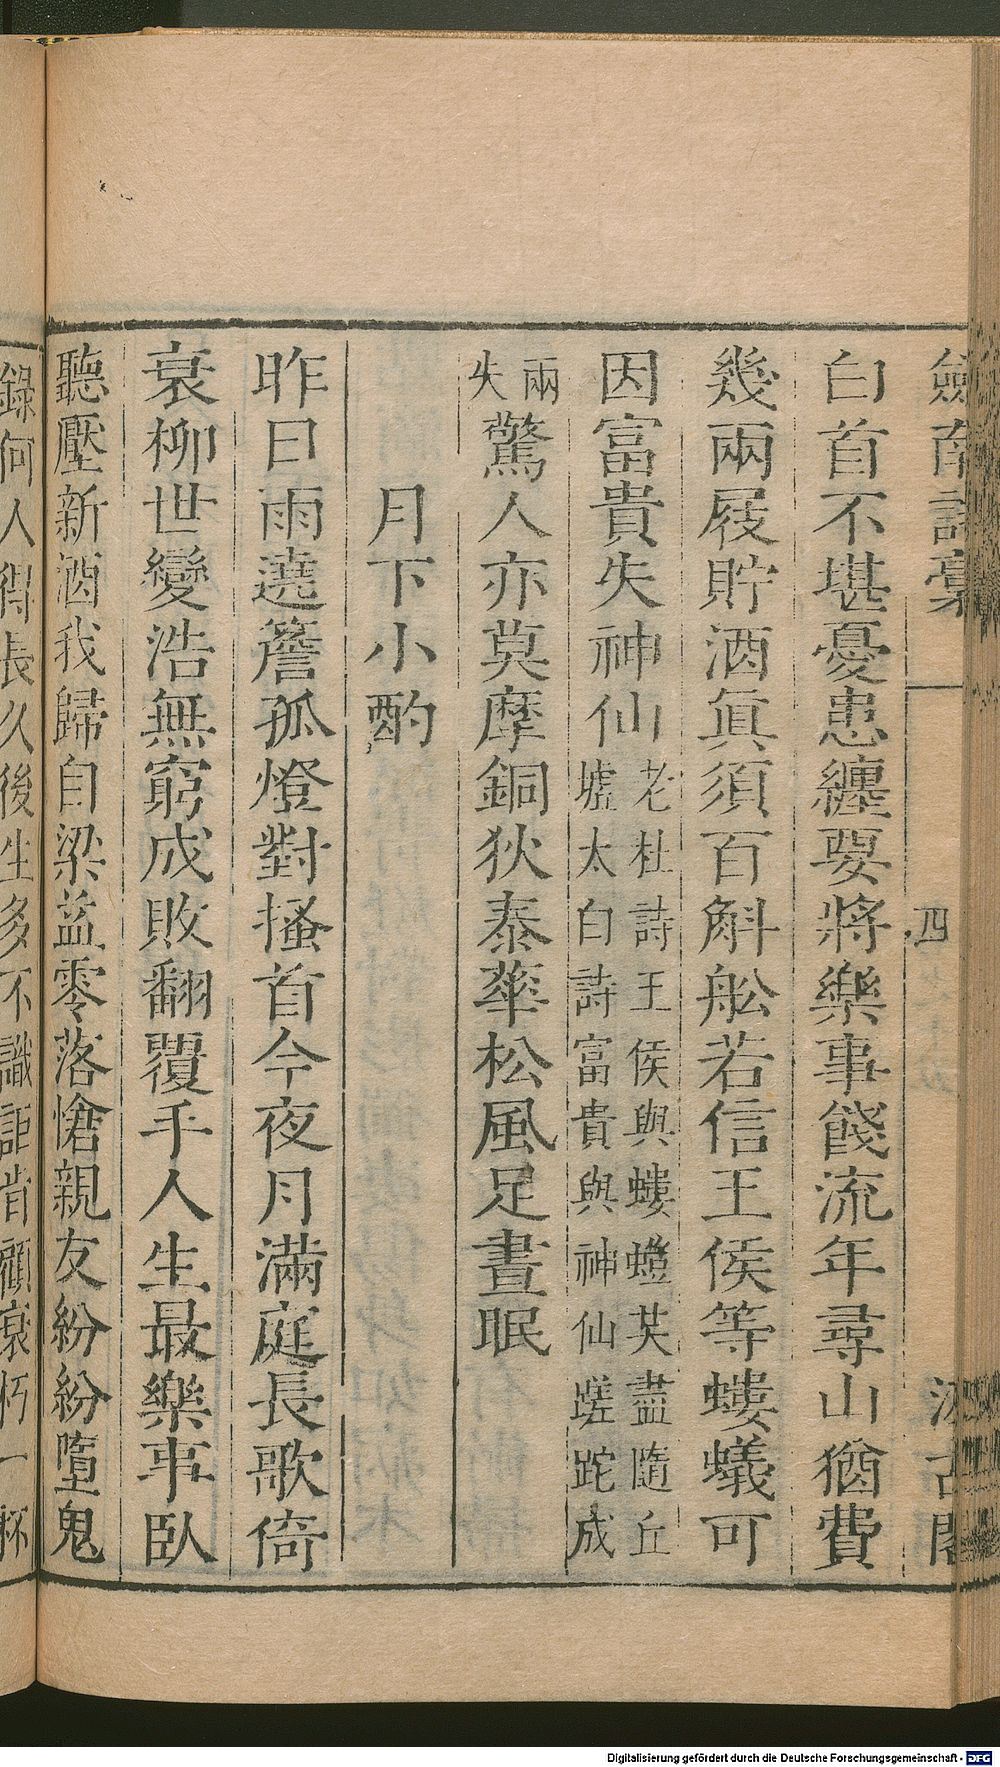 劍南詩稾 四 汲古閣
白首不堪憂患纏要將樂事餞流年尋山猶費
幾兩屐貯酒眞須百斛船若信王侯等螻蟻可
因富貴失神仙老杜詩王侯與螻螘共盡隨丘墟太白詩富貴與神仙蹉跎成
兩失驚人亦莫摩銅狄泰華松風足晝眠
月下小酌
昨日雨遶簷孤燈對搔首今夜月滿庭長歌倚
衰柳世變浩無窮成敗翻覆手人生最樂事臥
聽壓新酒我歸自梁益零落愴親友紛紛墮鬼
錄何人得長久後生多不識詎肯顧衰朽一杯
Digitalisierung gefördert durch die Deutsche Forschungsgemeinschaft - DFG